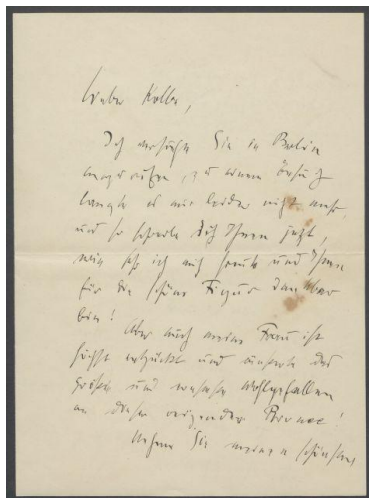 Lieber Kolbe,
Ich versuchte Sie in Berlin
anzurufen, zu einem Besuch
langte es mir leider nicht mehr,
und so schreibe ich Ihnen jetzt,
wie sehr ich mich freute und Ihnen
für die schöne Figur dankbar
bin! Aber auch meine Frau ist
höchst entzückt und
und unser Wohlgefallen
an dieser reizenden Bronze!
Nehmen Sie meinen schönsten